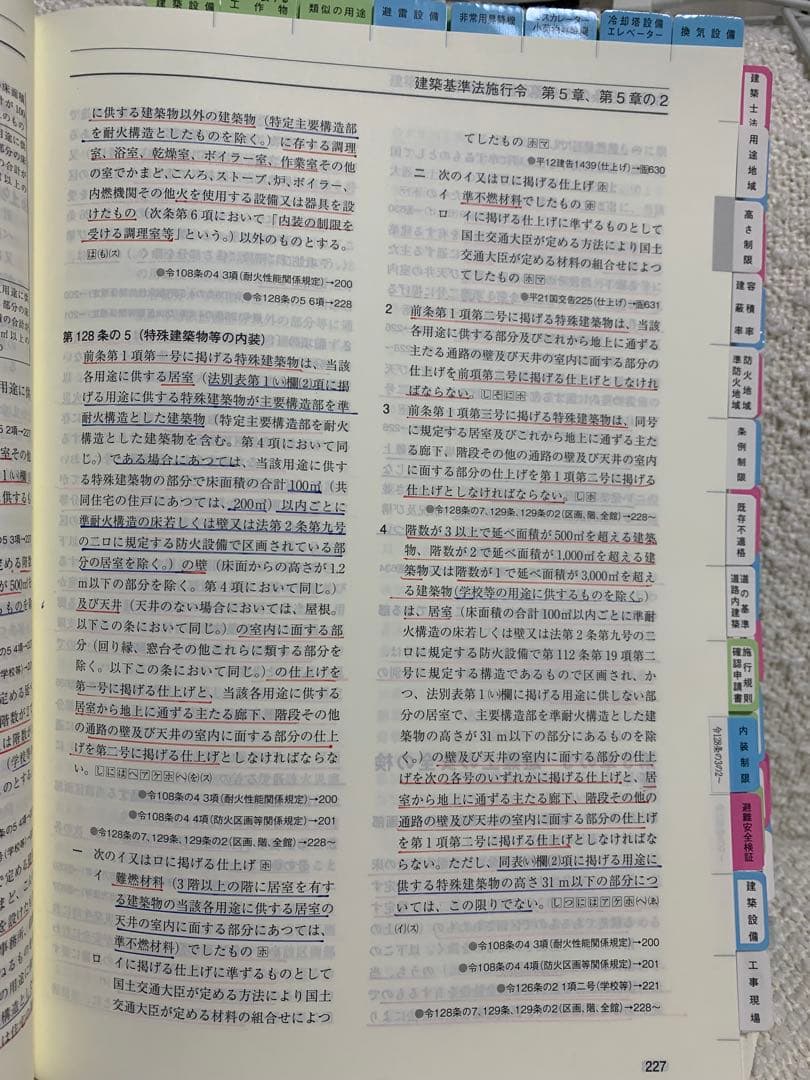 建築設備
工作物
類似の用途
避雷設備
非常用昇降機
エスカレーター
冷却塔設備
エレベーター
換気設備
建築基準法施行令 第5章、第5章の2
に供する建築物以外の建築物(特定主要構造部
を耐火構造としたものを除く。)に存する調理
室、浴室、乾燥室、ボイラー室、作業室その他
の室でかまど、こんろ、ストーブ、炉、ボイラー、
内燃機関その他火を使用する設備又は器具を設
けたもの(次条第6項において「内装の制限を
受ける調理室等」という。)以外のものとする。
●令108条の4 3項(耐火性能関係規定)→200
●令128条の5 6項→228
第128条の5(特殊建築物等の内装)
前条第1項第一号に掲げる特殊建築物は、当該
各用途に供する居室(法別表第1(い)欄(2)項に掲
げる用途に供する特殊建築物が主要構造部を準
耐火構造とした建築物(特定主要構造部を耐火
構造とした建築物を含む。第4項において同
じ。)である場合にあつては、当該用途に供す
る特殊建築物の部分で床面積の合計100㎡(共
同住宅の住戸にあつては、200㎡)以内ごとに
準耐火構造の床若しくは壁又は法第2条第九号
の二ロに規定する防火設備で区画されている部
分の居室を除く。)の壁(床面からの高さが1.2
m以下の部分を除く。第4項において同じ。)
及び天井(天井のない場合においては、屋根。
以下この条において同じ。)の室内に面する部
分(回り縁、窓台その他これらに類する部分を
除く。以下この条において同じ。)の仕上げを
第一号に掲げる仕上げと、当該各用途に供する
居室から地上に通ずる主たる廊下、階段その他
の通路の壁及び天井の室内に面する部分の仕上
げを第二号に掲げる仕上げとしなければならな
い。
●令108条の4 3項(耐火性能関係規定)→200
●令108条の4 4項(防火区画等関係規定)→201
●令128条の7、129条、129条の2(区画、階、全館)→228〜
一 次のイ又はロに掲げる仕上げ
イ 難燃材料(3階以上の階に居室を有す
る建築物の当該各用途に供する居室の
天井の室内に面する部分にあつては、
準不燃材料)でしたもの
ロ イに掲げる仕上げに準ずるものとして
国土交通大臣が定める方法により国土
交通大臣が定める材料の組合せによつ
てしたもの
●平12建告1439(仕上げ)→告630
二 次のイ又はロに掲げる仕上げ
イ 準不燃材料でしたもの
ロ イに掲げる仕上げに準ずるものとして
国土交通大臣が定める方法により国土
交通大臣が定める材料の組合せによつ
てしたもの
●平21国交告225(仕上げ)→告631
2 前条第1項第二号に掲げる特殊建築物は、当該
各用途に供する部分及びこれから地上に通ずる
主たる通路の壁及び天井の室内に面する部分の
仕上げを前項第二号に掲げる仕上げとしなけれ
ばならない。
3 前条第1項第三号に掲げる特殊建築物は、同号
に規定する居室及びこれから地上に通ずる主た
る廊下、階段その他の通路の壁及び天井の室内
に面する部分の仕上げを第1項第二号に掲げる
仕上げとしなければならない。
●令128条の7、129条、129条の2(区画、階、全館)→228〜
4 階数が3以上で延べ面積が500㎡を超える建築
物、階数が2で延べ面積が1,000㎡を超える建
築物又は階数が1で延べ面積が3,000㎡を超え
る建築物(学校等の用途に供するものを除く。)
は、居室(床面積の合計100㎡以内ごとに準耐
火構造の床若しくは壁又は法第2条第九号の二
ロに規定する防火設備で第112条第19項第二
号に規定する構造であるもので区画され、か
つ、法別表第1(い)欄に掲げる用途に供しない部
分の居室で、主要構造部を準耐火構造とした建
築物の高さが31m以下の部分にあるものを除
く。)の壁及び天井の室内に面する部分の仕上
げを次の各号のいずれかに掲げる仕上げと、居
室から地上に通ずる主たる廊下、階段その他の
通路の壁及び天井の室内に面する部分の仕上げ
を第1項第二号に掲げる仕上げとしなければな
らない。ただし、同表(い)欄(2)項に掲げる用途に
供する特殊建築物の高さ31m以下の部分につ
いては、この限りでない。
●令108条の4 3項(耐火性能関係規定)→200
●令108条の4 4項(防火区画等関係規定)→201
●令126条の2 1項二号(学校等)→221
●令128条の7、129条、129条の2(区画、階、全館)→228〜
227
建築士法
用途地域
高さ制限
容積率
建蔽率
防火地域
準防火地域
条例制限
既存不適格
道の基準
道路内建築
施行規則
確認申請書
内装制限
令128条の3の2〜
避難安全検証
建築設備
工事現場